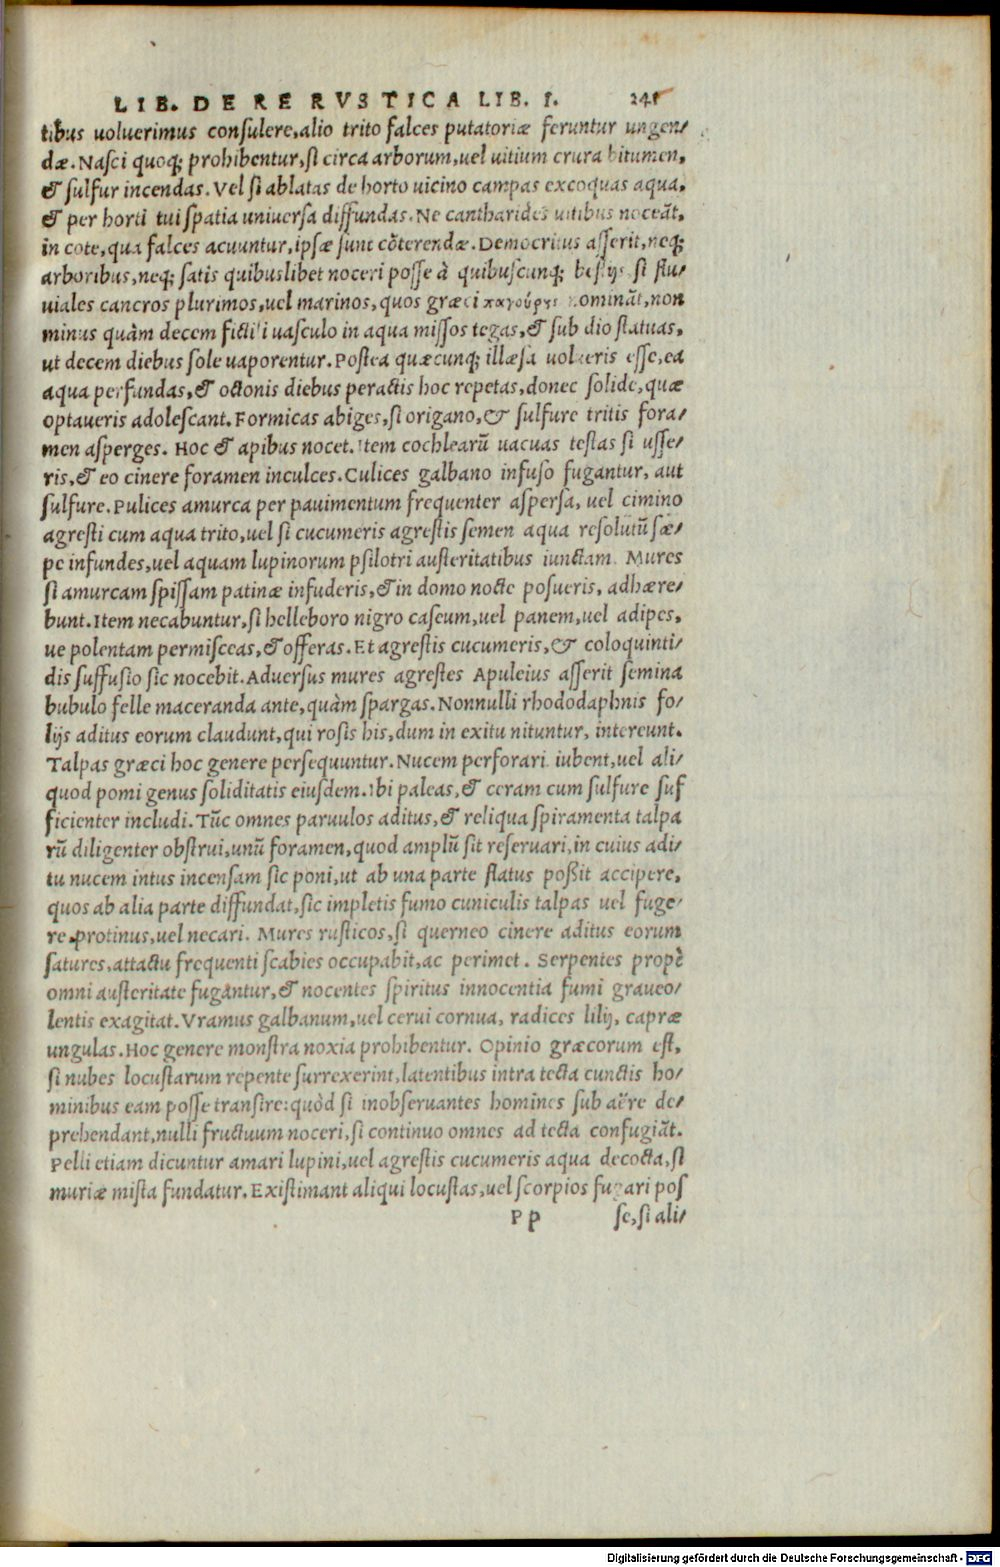 LIB. DE RE RVSTICA LIB. I. 241
tibus uoluerimus consulere, alio trito falces putatoriæ feruntur ungen/
dæ. Nasci quoq; prohibentur, si circa arborum, uel uitium crura bitumen,
& sulfur incendas. Vel si ablatas de horto uicino campas excoquas aqua,
& per horti tui spatia uniuersa diffundas. Ne cantharides uitibus noceāt,
in cote, qua falces acuuntur, ipsæ sunt cōterendæ. Democritus asserit, neq;
arboribus, neq; satis quibuslibet noceri posse à quibuscunq; bestijs, si flu/
uiales cancros plurimos, uel marinos, quos græci παγούρȣς nomināt, non
minus quàm decem fictili uasculo in aqua missos tegas, & sub dio statuas,
ut decem diebus sole uaporentur. Postea quæcunq; illæsa uolueris esse, ea
aqua perfundas, & octonis diebus peractis hoc repetas, donec solide, quæ
optaueris adolescant. Formicas abiges, si origano, & sulfure tritis fora/
men asperges. Hoc & apibus nocet. Item cochlearū uacuas testas si usse/
ris, & eo cinere foramen inculces. Culices galbano infuso fugantur, aut
sulfure. Pulices amurca per pauimentum frequenter aspersa, uel cimino
agresti cum aqua trito, uel si cucumeris agrestis semen aqua resolutū sæ/
pe infundes, uel aquam lupinorum psilotri austeritatibus iunctam. Mures
si amurcam spissam patinæ infuderis, & in domo nocte posueris, adhære/
bunt. Item necabuntur, si helleboro nigro caseum, uel panem, uel adipes,
ue polentam permisceas, & offeras. Et agrestis cucumeris, & coloquinti/
dis suffusio sic nocebit. Aduersus mures agrestes Apuleius asserit semina
bubulo felle maceranda ante, quàm spargas. Nonnulli rhododaphnis fo/
lijs aditus eorum claudunt, qui rosis his, dum in exitu nituntur, intereunt.
Talpas græci hoc genere persequuntur. Nucem perforari iubent, uel ali/
quod pomi genus soliditatis eiusdem. Ibi paleas, & ceram cum sulfure suf
ficienter includi. Tūc omnes paruulos aditus, & reliqua spiramenta talpa
rū diligenter obstrui, unū foramen, quod amplū sit reseruari, in cuius adi/
tu nucem intus incensam sic poni, ut ab una parte flatus poßit accipere,
quos ab alia parte diffundat, sic impletis fumo cuniculis talpas uel fuge/
re protinus, uel necari. Mures rusticos, si querneo cinere aditus eorum
satures, attactu frequenti scabies occupabit, ac perimet. Serpentes propè
omni austeritate fugantur, & nocentes spiritus innocentia fumi graueo/
lentis exagitat. Vramus galbanum, uel cerui cornua, radices lilij, capræ
ungulas. Hoc genere monstra noxia prohibentur. Opinio græcorum est,
si nubes locustarum repente surrexerint, latentibus intra tecta cunctis ho/
minibus eam posse transire: quòd si inobseruantes homines sub aëre de/
prehendant, nulli fructuum noceri, si continuo omnes ad tecta confugiāt.
Pelli etiam dicuntur amari lupini, uel agrestis cucumeris aqua decocta, si
muriæ mista fundatur. Existimant aliqui locustas, uel scorpios fugari pos
Pp se, si ali/
Digitalisierung gefördert durch die Deutsche Forschungsgemeinschaft - DFG